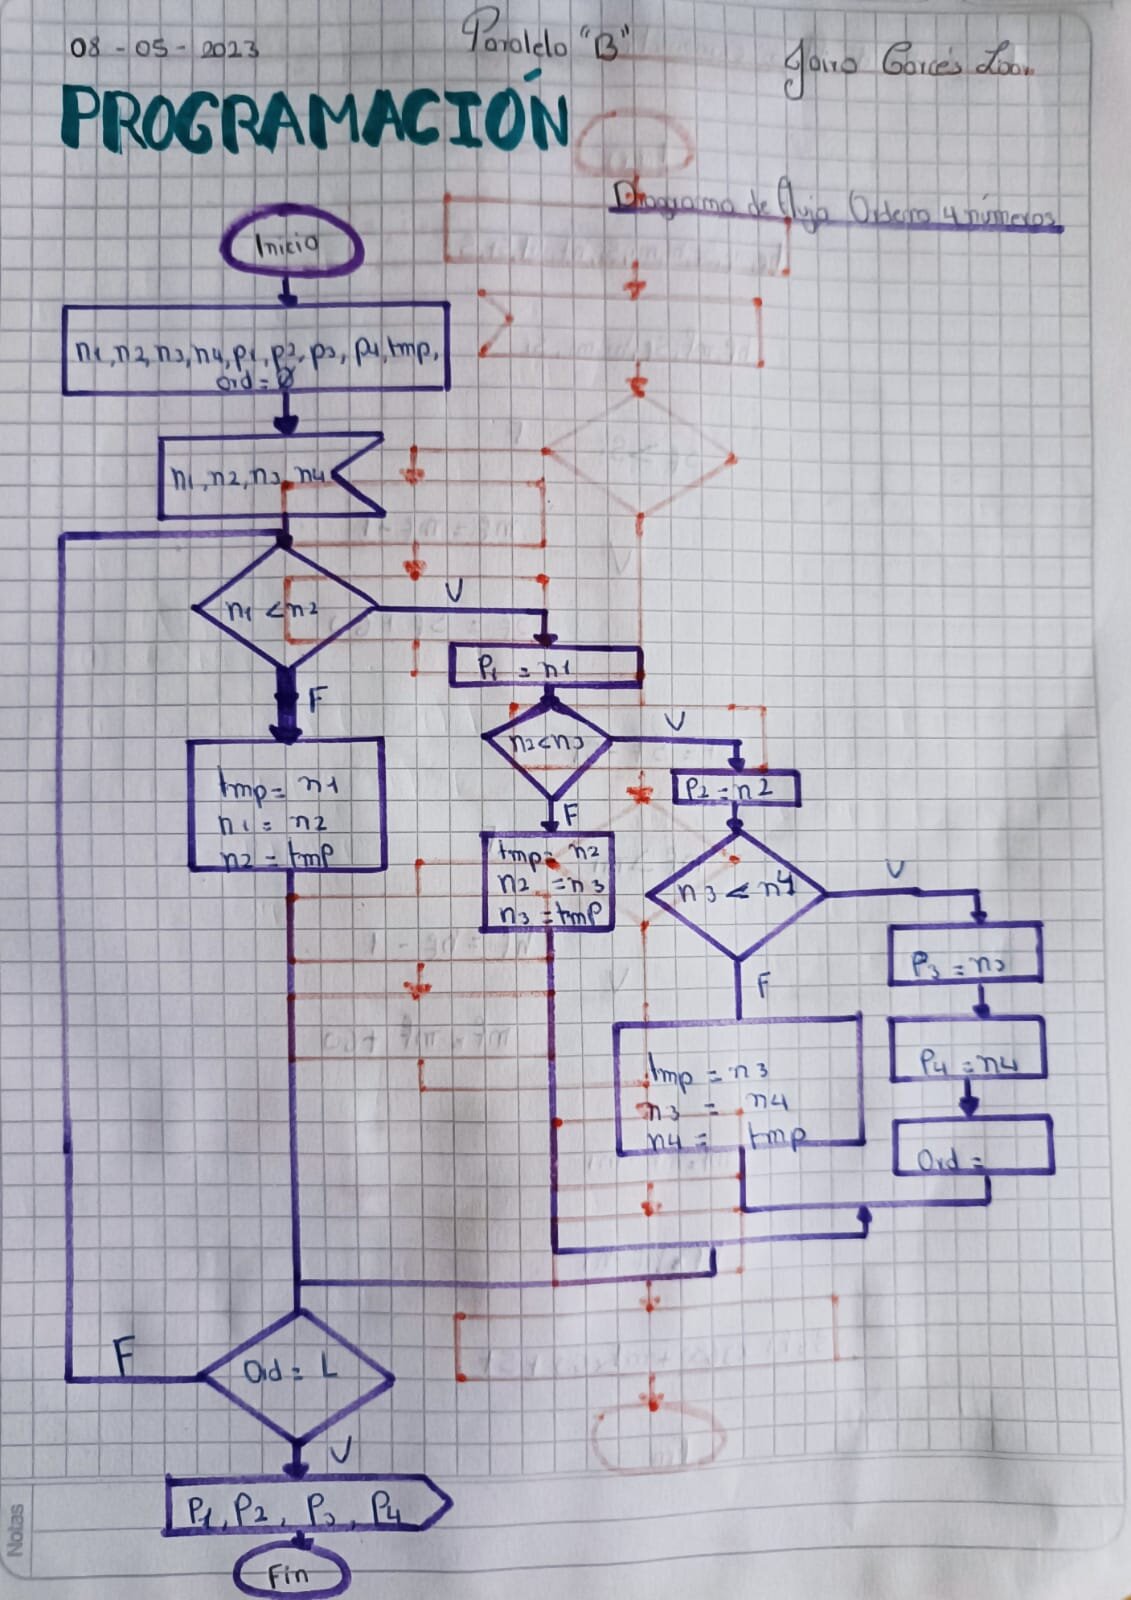 08 - 05 - 2023
Paralelo "B"
PROGRAMACIÓN
Diagrama de flujo Ordena 4 números
Inicio
n1, n2, n3, n4, p1, p2, p3, p4, tmp,
Ord = 0
n1, n2, n3, n4
n1 < n2
V
F
P1 = n1
n2 < n3
V
F
tmp = n1
n1 = n2
n2 = tmp
P2 = n2
tmp = n2
n2 = n3
n3 = tmp
n3 < n4
V
F
P3 = n3
P4 = n4
tmp = n3
n3 = n4
n4 = tmp
Ord =
F
Ord = L
V
P1, P2, P3, P4
Fin
Notas